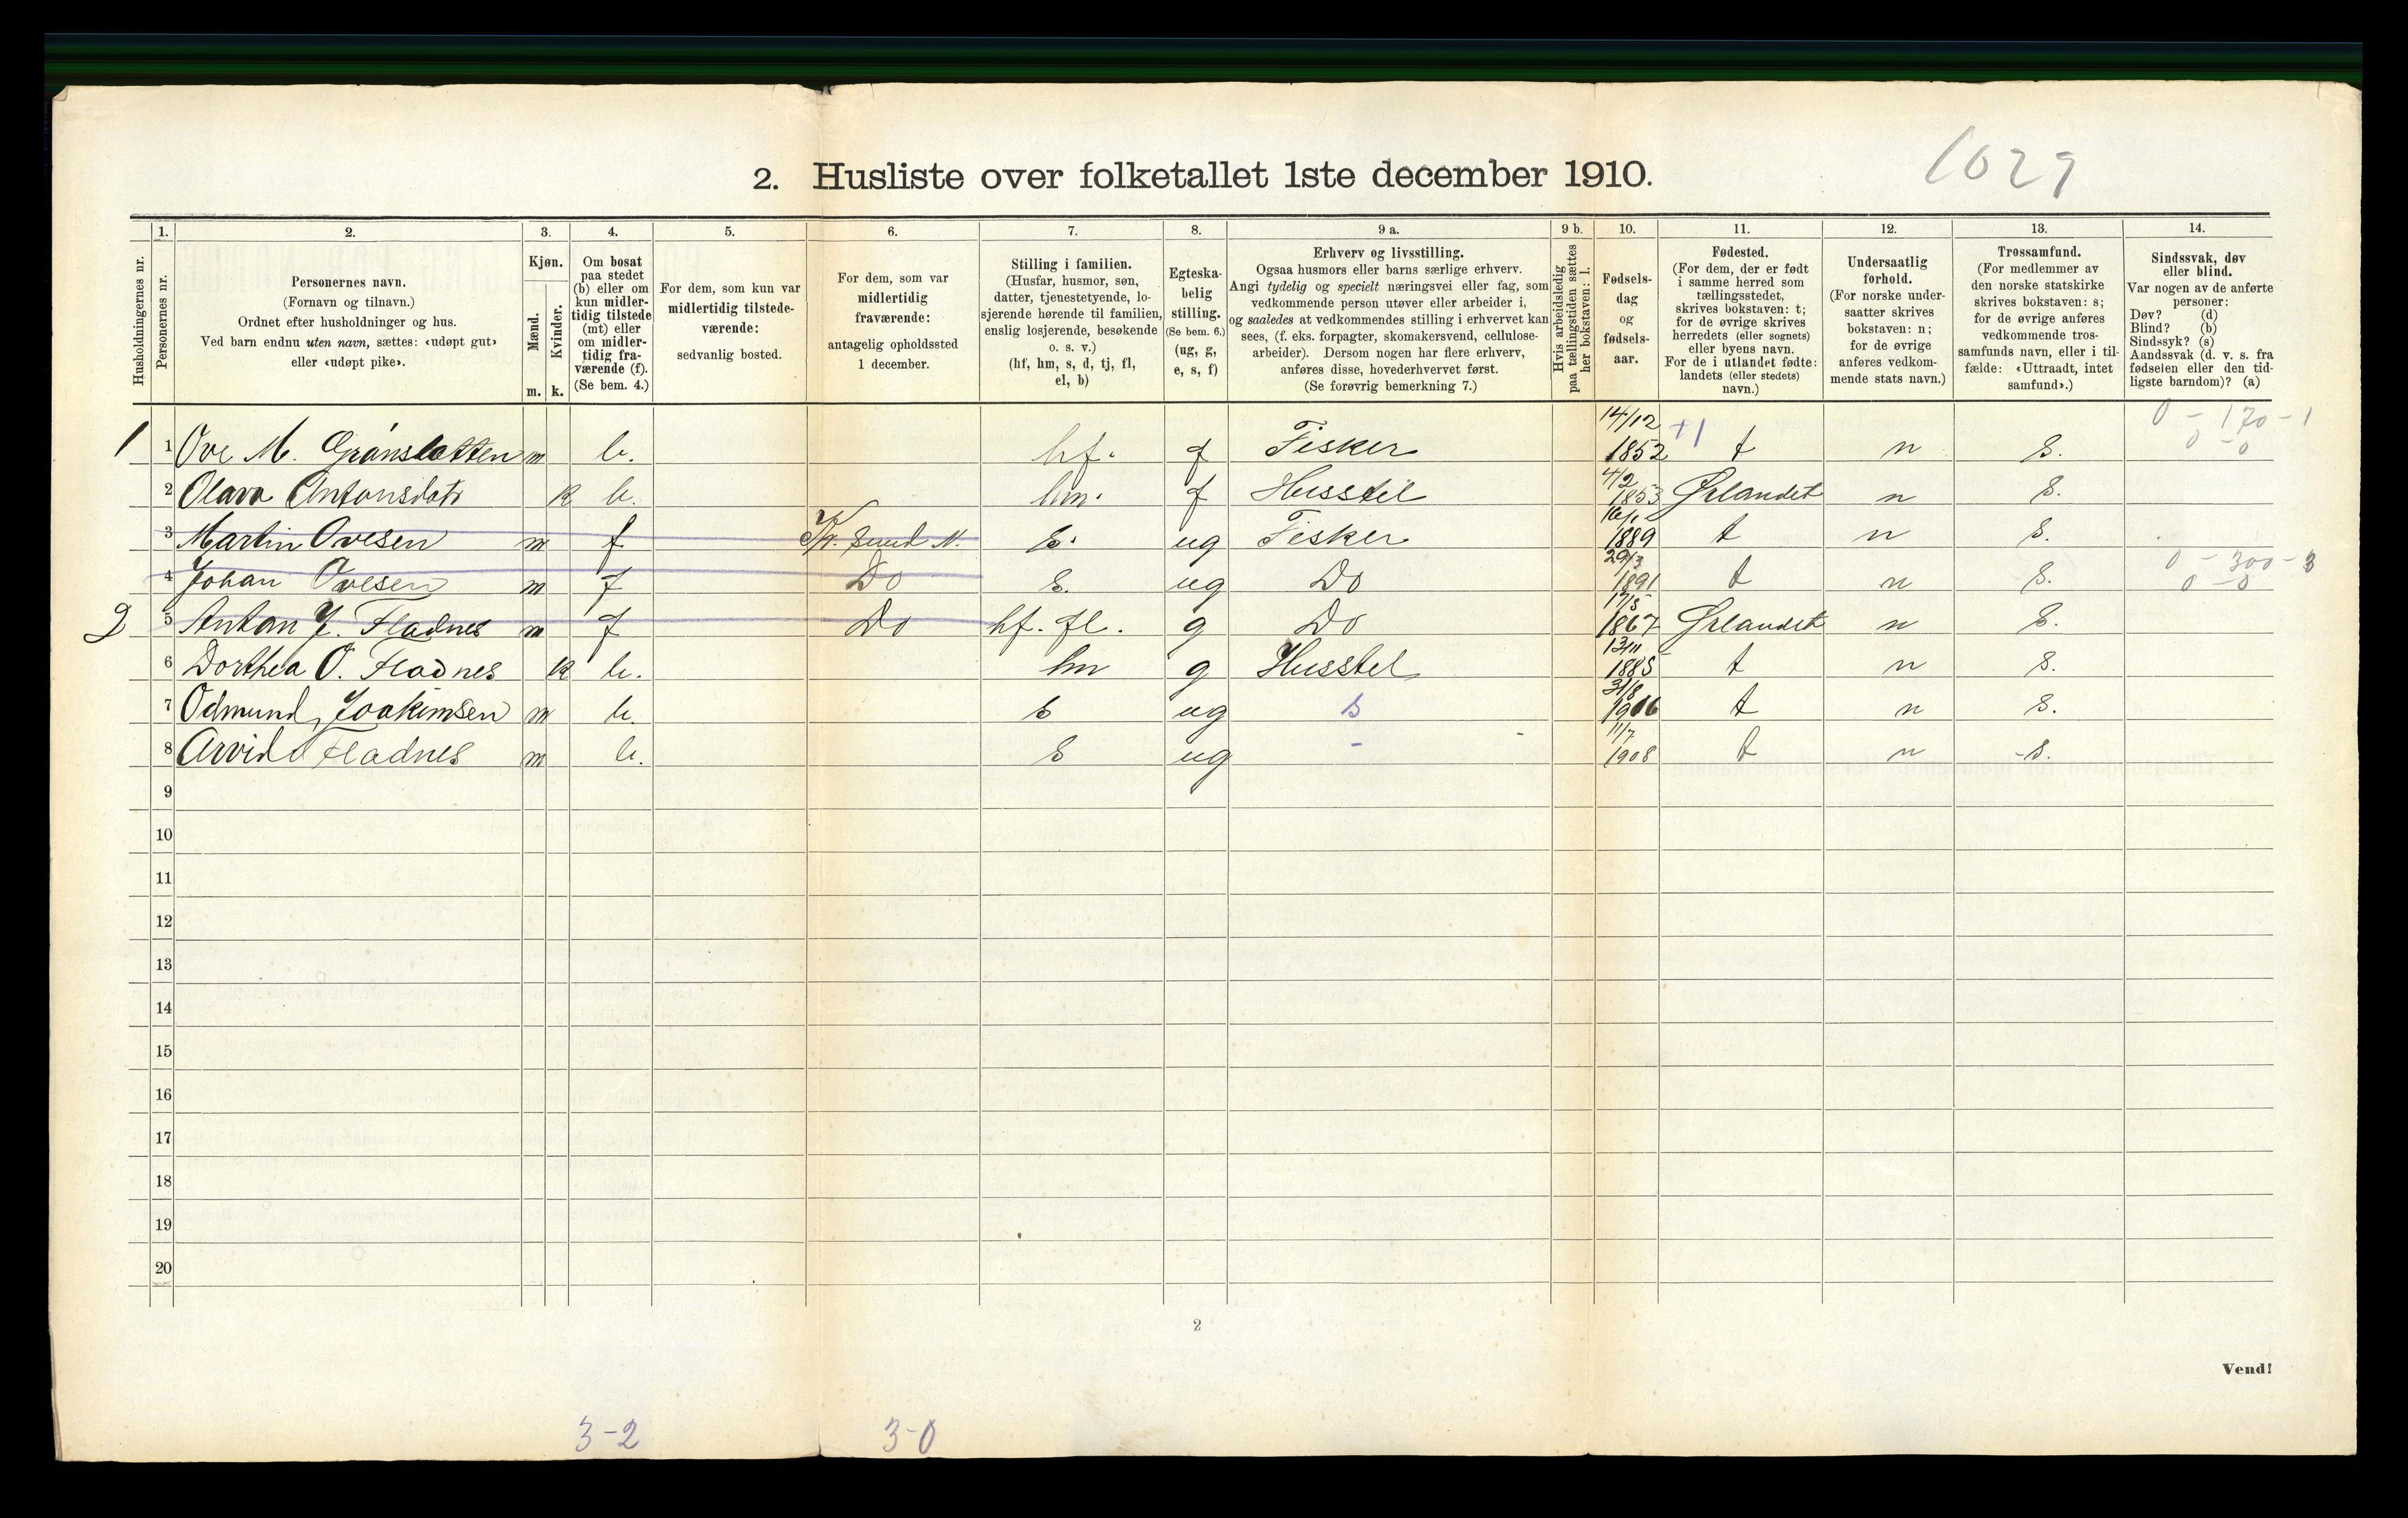 1029
2. Husliste over folketallet 1ste december 1910.
Husholdningernes nr.
1. Personernes nr.
2. Personernes navn.
(Fornavn og tilnavn.)
Ordnet efter husholdninger og hus.
Ved barn endnu uten navn, sættes: «udøpt gut»
eller «udøpt pike».
3. Kjøn.
Mænd. Kvinder.
m. k.
4. Om bosat
paa stedet
(b) eller om
kun midler-
tidig tilstede
(mt) eller
om midler-
tidig fra-
værende (f).
(Se bem. 4.)
5. For dem, som kun var
midlertidig tilstede-
værende:
sedvanlig bosted.
6. For dem, som var
midlertidig
fraværende:
antagelig opholdssted
1 december.
7. Stilling i familien.
(Husfar, husmor, søn,
datter, tjenestetyende, lo-
sjerende hørende til familien,
enslig losjerende, besøkende
o. s. v.)
(hf, hm, s, d, tj, fl,
el, b)
8. Egteska-
belig
stilling.
(Se bem. 6.)
(ug, g,
e, s, f)
9 a. Erhverv og livsstilling.
Ogsaa husmors eller barns særlige erhverv.
Angi tydelig og specielt næringsvei eller fag, som
vedkommende person utøver eller arbeider i,
og saaledes at vedkommendes stilling i erhvervet kan
sees, (f. eks. forpagter, skomakersvend, cellulose-
arbeider). Dersom nogen har flere erhverv,
anføres disse, hovederhvervet først.
(Se forøvrig bemerkning 7.)
9 b. Hvis arbeidsledig
paa tællingstiden sættes
her bokstaven: l.
10. Fødsels-
dag
og
fødsels-
aar.
11. Fødested.
(For dem, der er født
i samme herred som
tællingsstedet,
skrives bokstaven: t;
for de øvrige skrives
herredets (eller sognets)
eller byens navn.
For de i utlandet fødte:
landets (eller stedets)
navn.)
12. Undersaatlig
forhold.
(For norske under-
saatter skrives
bokstaven: n;
for de øvrige
anføres vedkom-
mende stats navn.)
13. Trossamfund.
(For medlemmer av
den norske statskirke
skrives bokstaven: s;
for de øvrige anføres
vedkommende tros-
samfunds navn, eller i til-
fælde: «Uttraadt, intet
samfund».)
14. Sindssvak, døv
eller blind.
Var nogen av de anførte
personer:
Døv? (d)
Blind? (b)
Sindssyk? (s)
Aandssvak (d. v. s. fra
fødselen eller den tid-
ligste barndom)? (a)
1 1 Ove M. Grønsletten m b. hf. f Fisker 14/12 1852 +1 t n s. 0 - 170 - 1
0 - 0
2 Olava Antonsdatr k b. hm. f Husstel 4/2 1853 Ørlandet n s.
3 Martin Ovesen m f Kr. sund N. s. ug Fisker 1889 t n s.
4 Johan Ovesen m f Do s. ug Do 29/3 1891 t n s. 0 - 300 - 3
0 - 0
2 5 Anton J. Fladnes m f Do hf. fl. g Do 17/5 1867 Ørlandet n s.
6 Dorthea O. Fladnes k b. hm g Husstel 13/11 1885 t n s.
7 Odmund Joakimsen m b. s ug s 31/8 1906 t n s.
8 Arvid Fladnes m b. s ug - 11/7 1908 t n s.
9
10
11
12
13
14
15
16
17
18
19
20
2
Vend!
3-2 3-0